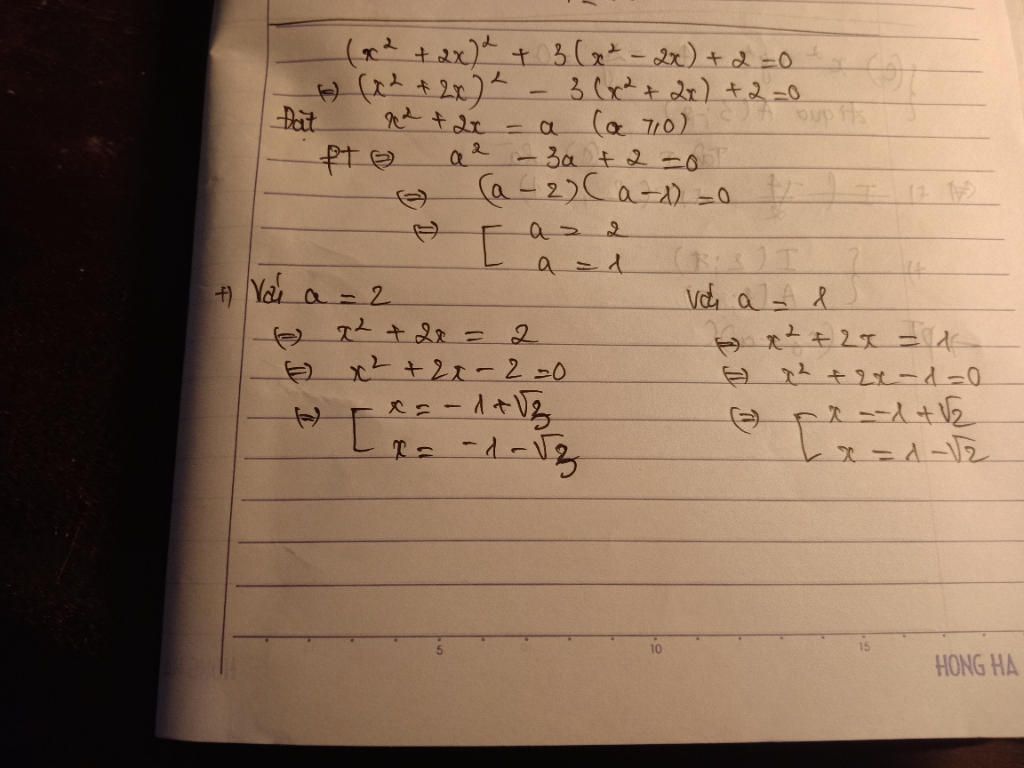 (x² + 2x)² + 3(x² - 2x) + 2 = 0
⇔ (x² + 2x)² - 3(x² + 2x) + 2 = 0
Đặt x² + 2x = a (a ≥ 0)
PT ⇔ a² - 3a + 2 = 0
⇔ (a - 2)(a - 1) = 0
⇔ [ a = 2
a = 1
+) Với a = 2
⇔ x² + 2x = 2
⇔ x² + 2x - 2 = 0
⇔ [ x = -1 + √3
x = -1 - √3
Với a = 1
⇔ x² + 2x = 1
⇔ x² + 2x - 1 = 0
⇔ [ x = -1 + √2
x = 1 - √2
5 10 15
HONG HA